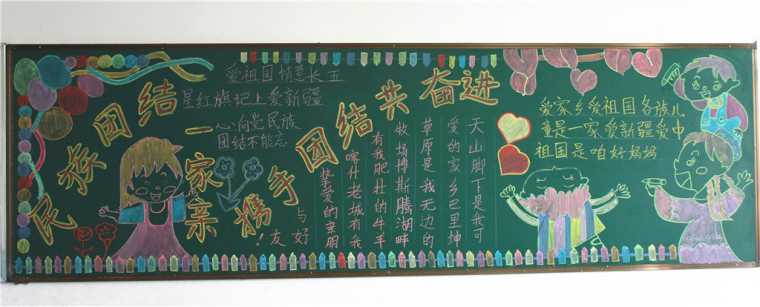 民族团结一家亲
携手团结共奋进
爱祖国情意长五
星红旗记上爱新疆
心向党民族
团结不能忘
天山脚下是我可
爱的家乡巴里坤
草原是我无边的
牧场博斯腾湖畔
有我肥壮的牛羊
喀什老城有我
挚爱的亲朋
与好
友！
爱家乡爱祖国各族儿
童是一家爱新疆爱中
祖国是咱好妈妈